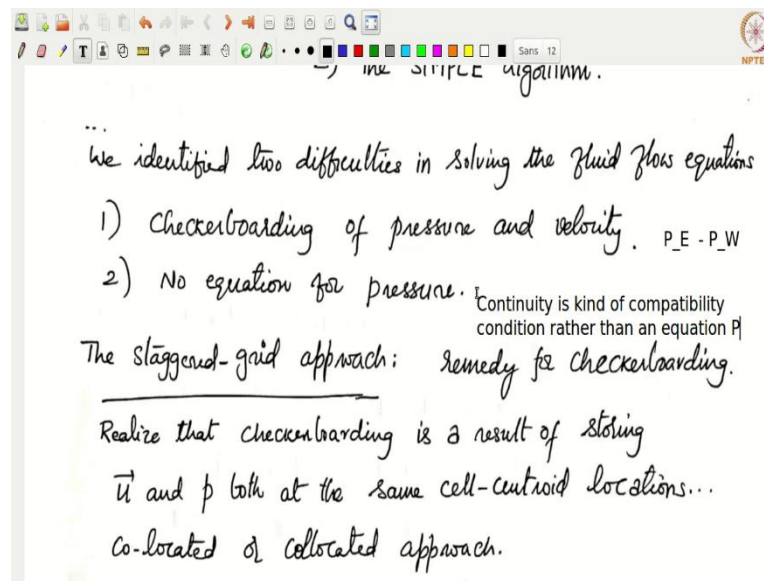 Sans 12
NPTE
2) The SIMPLE algorithm.
...
We identified two difficulties in solving the fluid flow equations
1) Checkerboarding of pressure and velocity. P_E - P_W
2) No equation for pressure.
Continuity is kind of compatibility
condition rather than an equation P
The staggered-grid approach: remedy for checkerboarding.
Realize that checkerboarding is a result of storing
u⃗ and p both at the same cell-centroid locations...
Co-located or collocated approach.